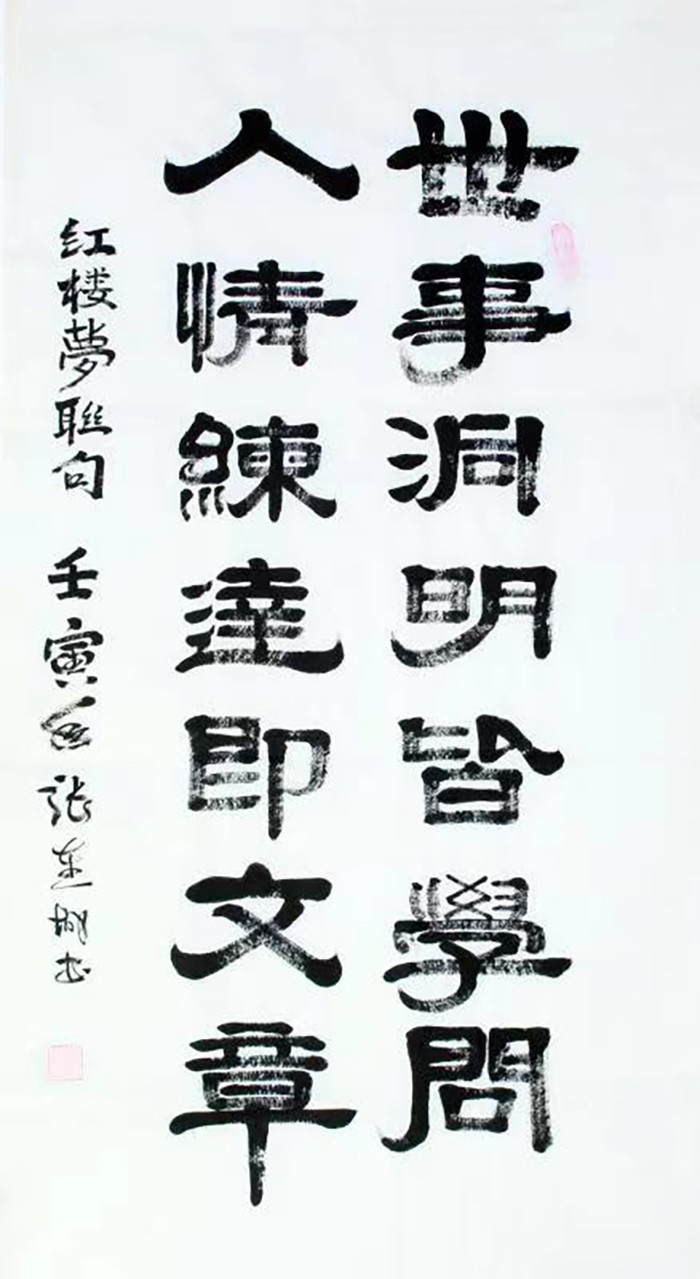 世事洞明皆學問
人情練達即文章
红楼夢聯句 壬寅